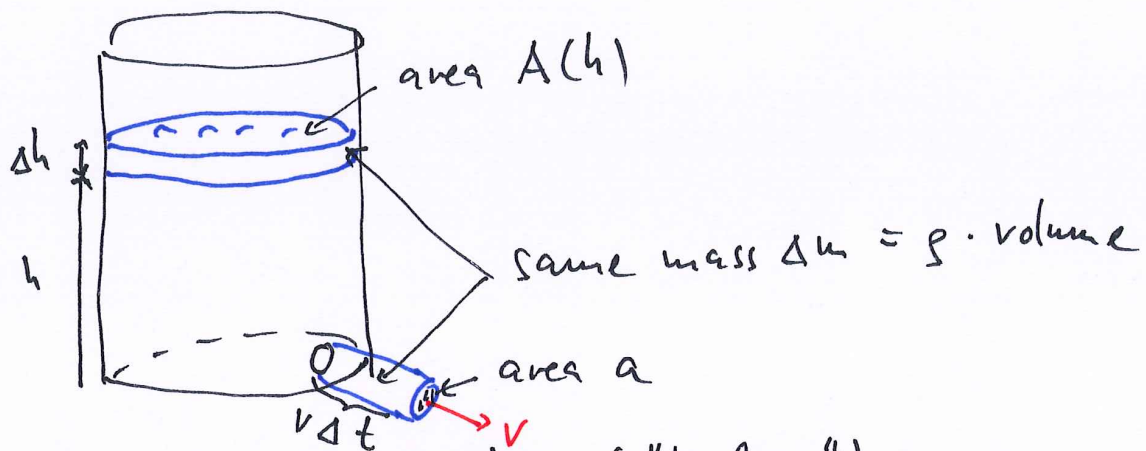 area A(h)
Δh
h
same mass Δm = ρ · volume
area a
v Δt
v